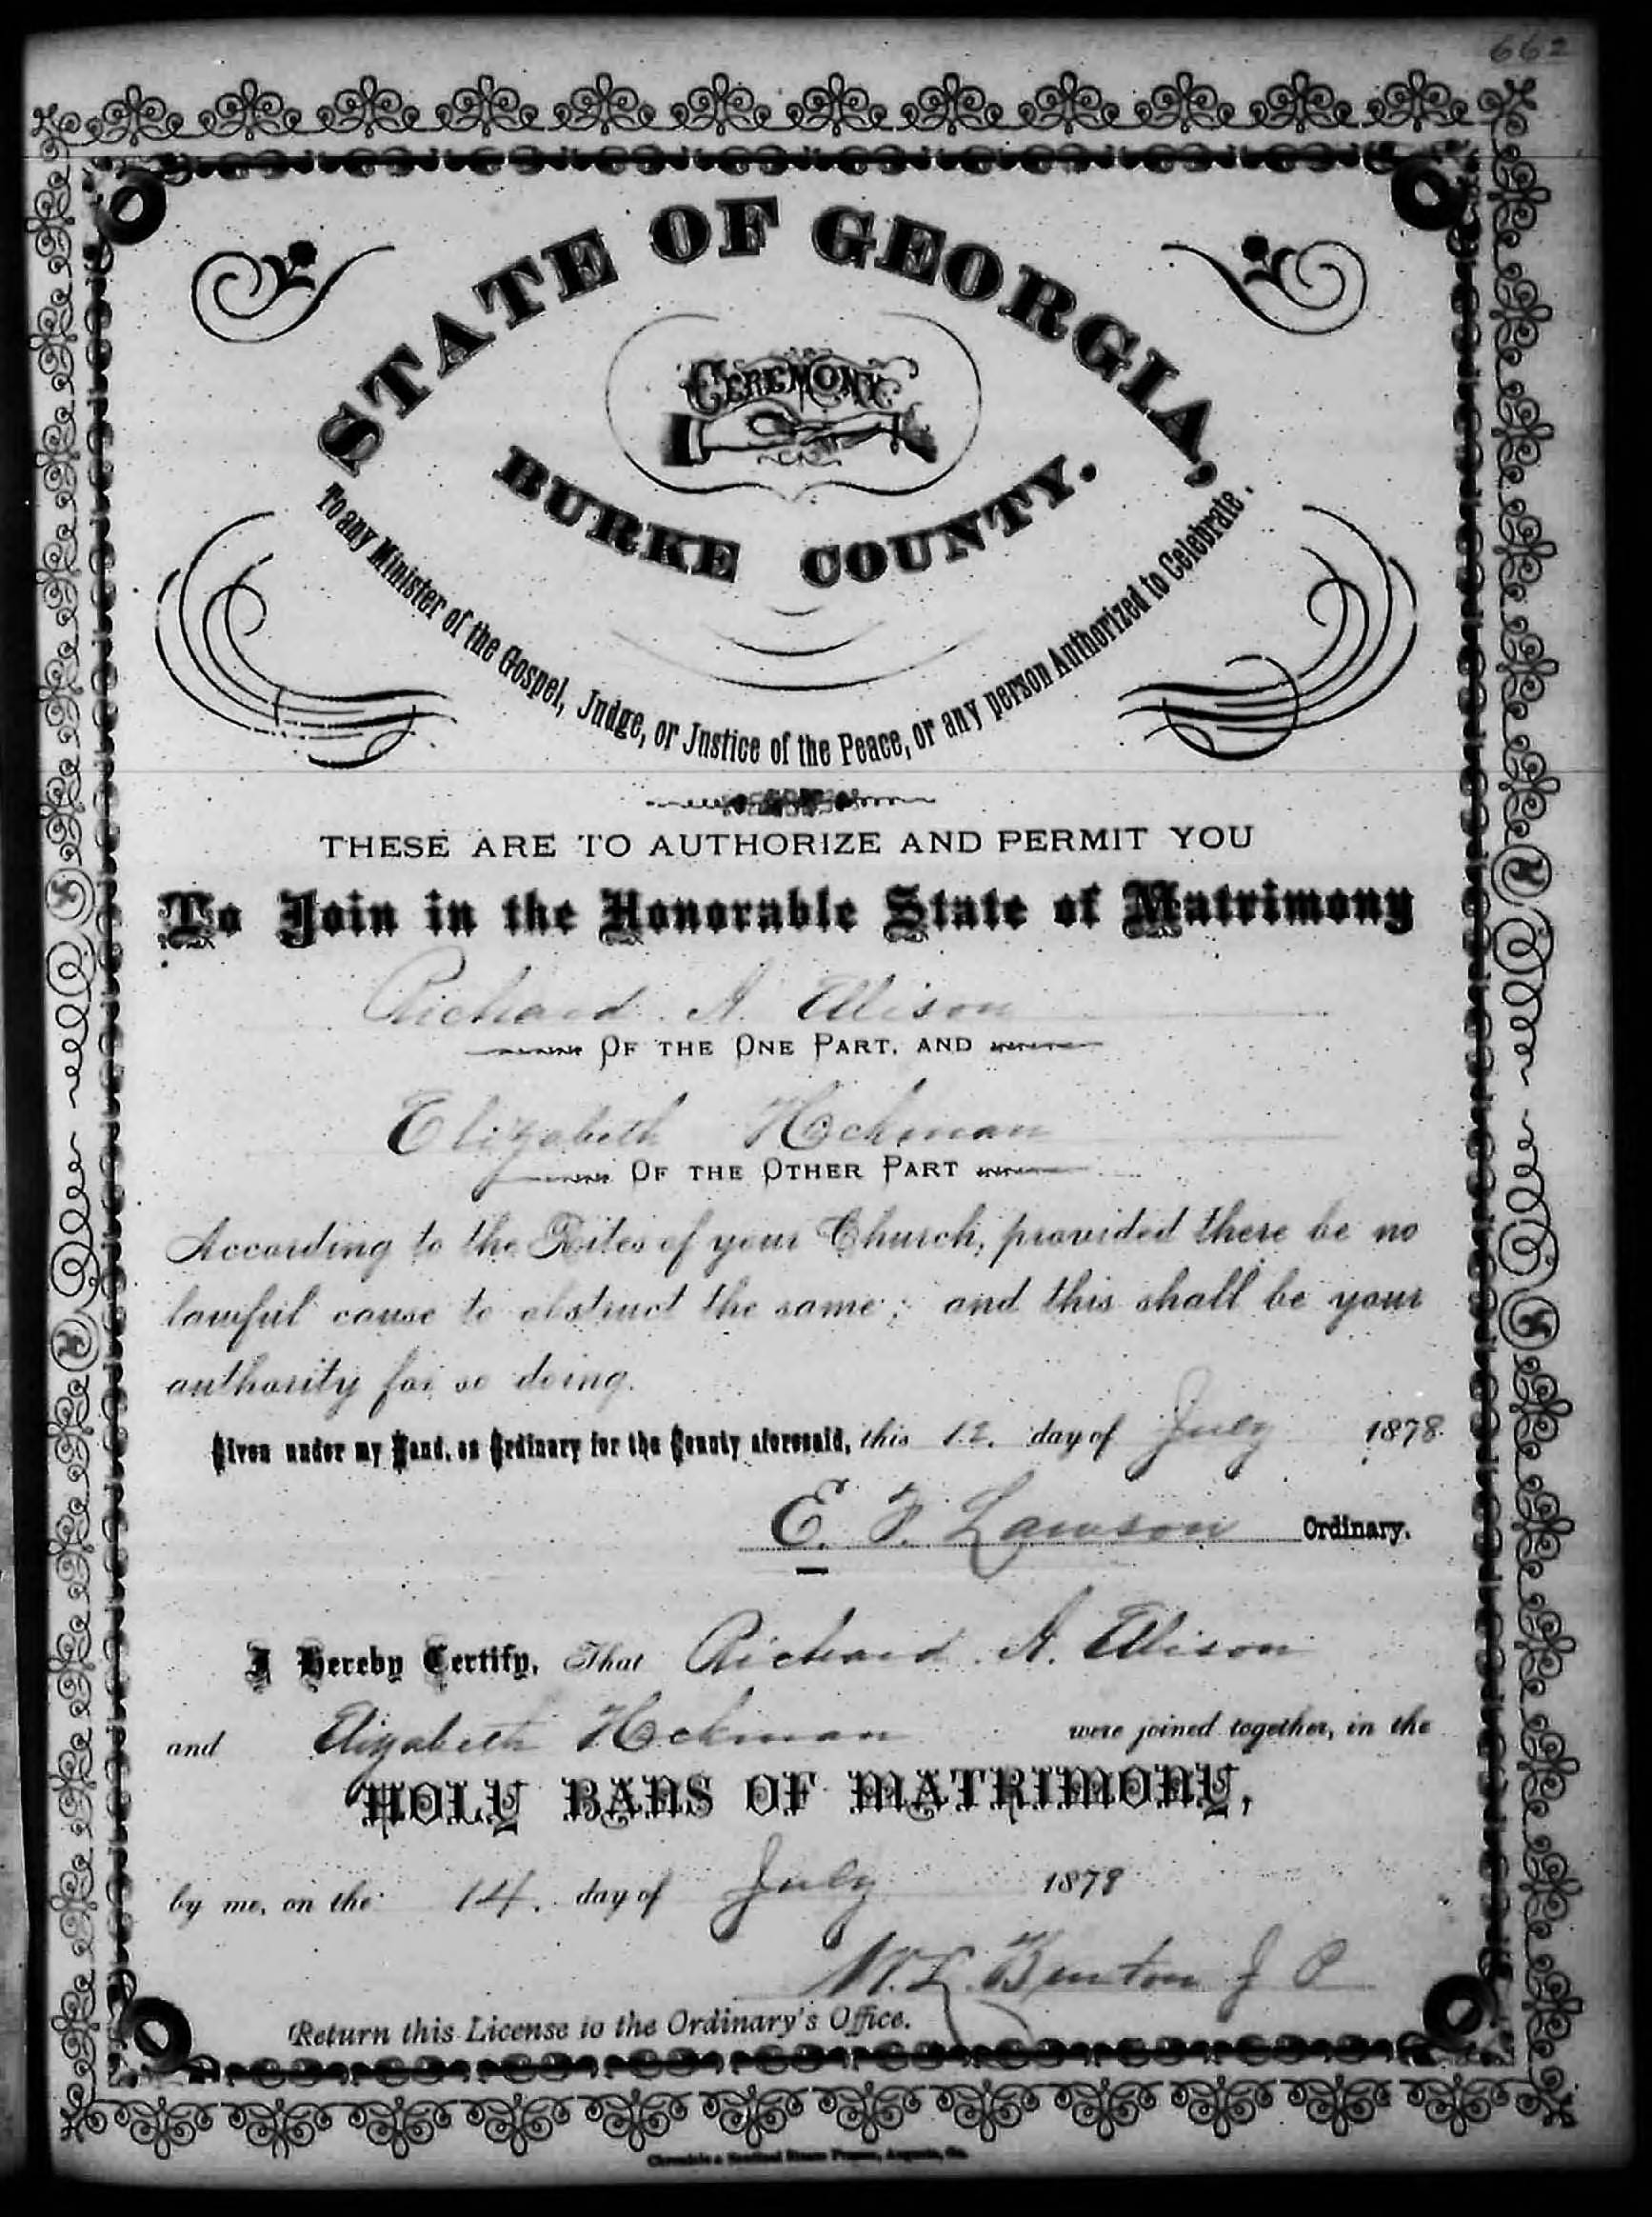 662
STATE OF GEORGIA,
CEREMONY
BURKE COUNTY.
To any Minister of the Gospel, Judge, or Justice of the Peace, or any person Authorized to Celebrate.
THESE ARE TO AUTHORIZE AND PERMIT YOU
To Join in the Honorable State of Matrimony
Richard A. Ellison
OF THE ONE PART, AND
Elizabeth Hockman
OF THE OTHER PART
According to the Rites of your Church, provided there be no
lawful cause to obstruct the same; and this shall be your
authority for so doing.
Given under my Hand, as Ordinary for the County aforesaid, this 12. day of July 1878.
E. F. Lawson Ordinary.
I Hereby Certify, That Richard A. Ellison
and Elizabeth Hockman were joined together, in the
HOLY BANS OF MATRIMONY,
by me, on the 14. day of July 1878
W. L. Burton J P
Return this License to the Ordinary's Office.
Chronicle & Sentinel Steam Presses, Augusta, Ga.